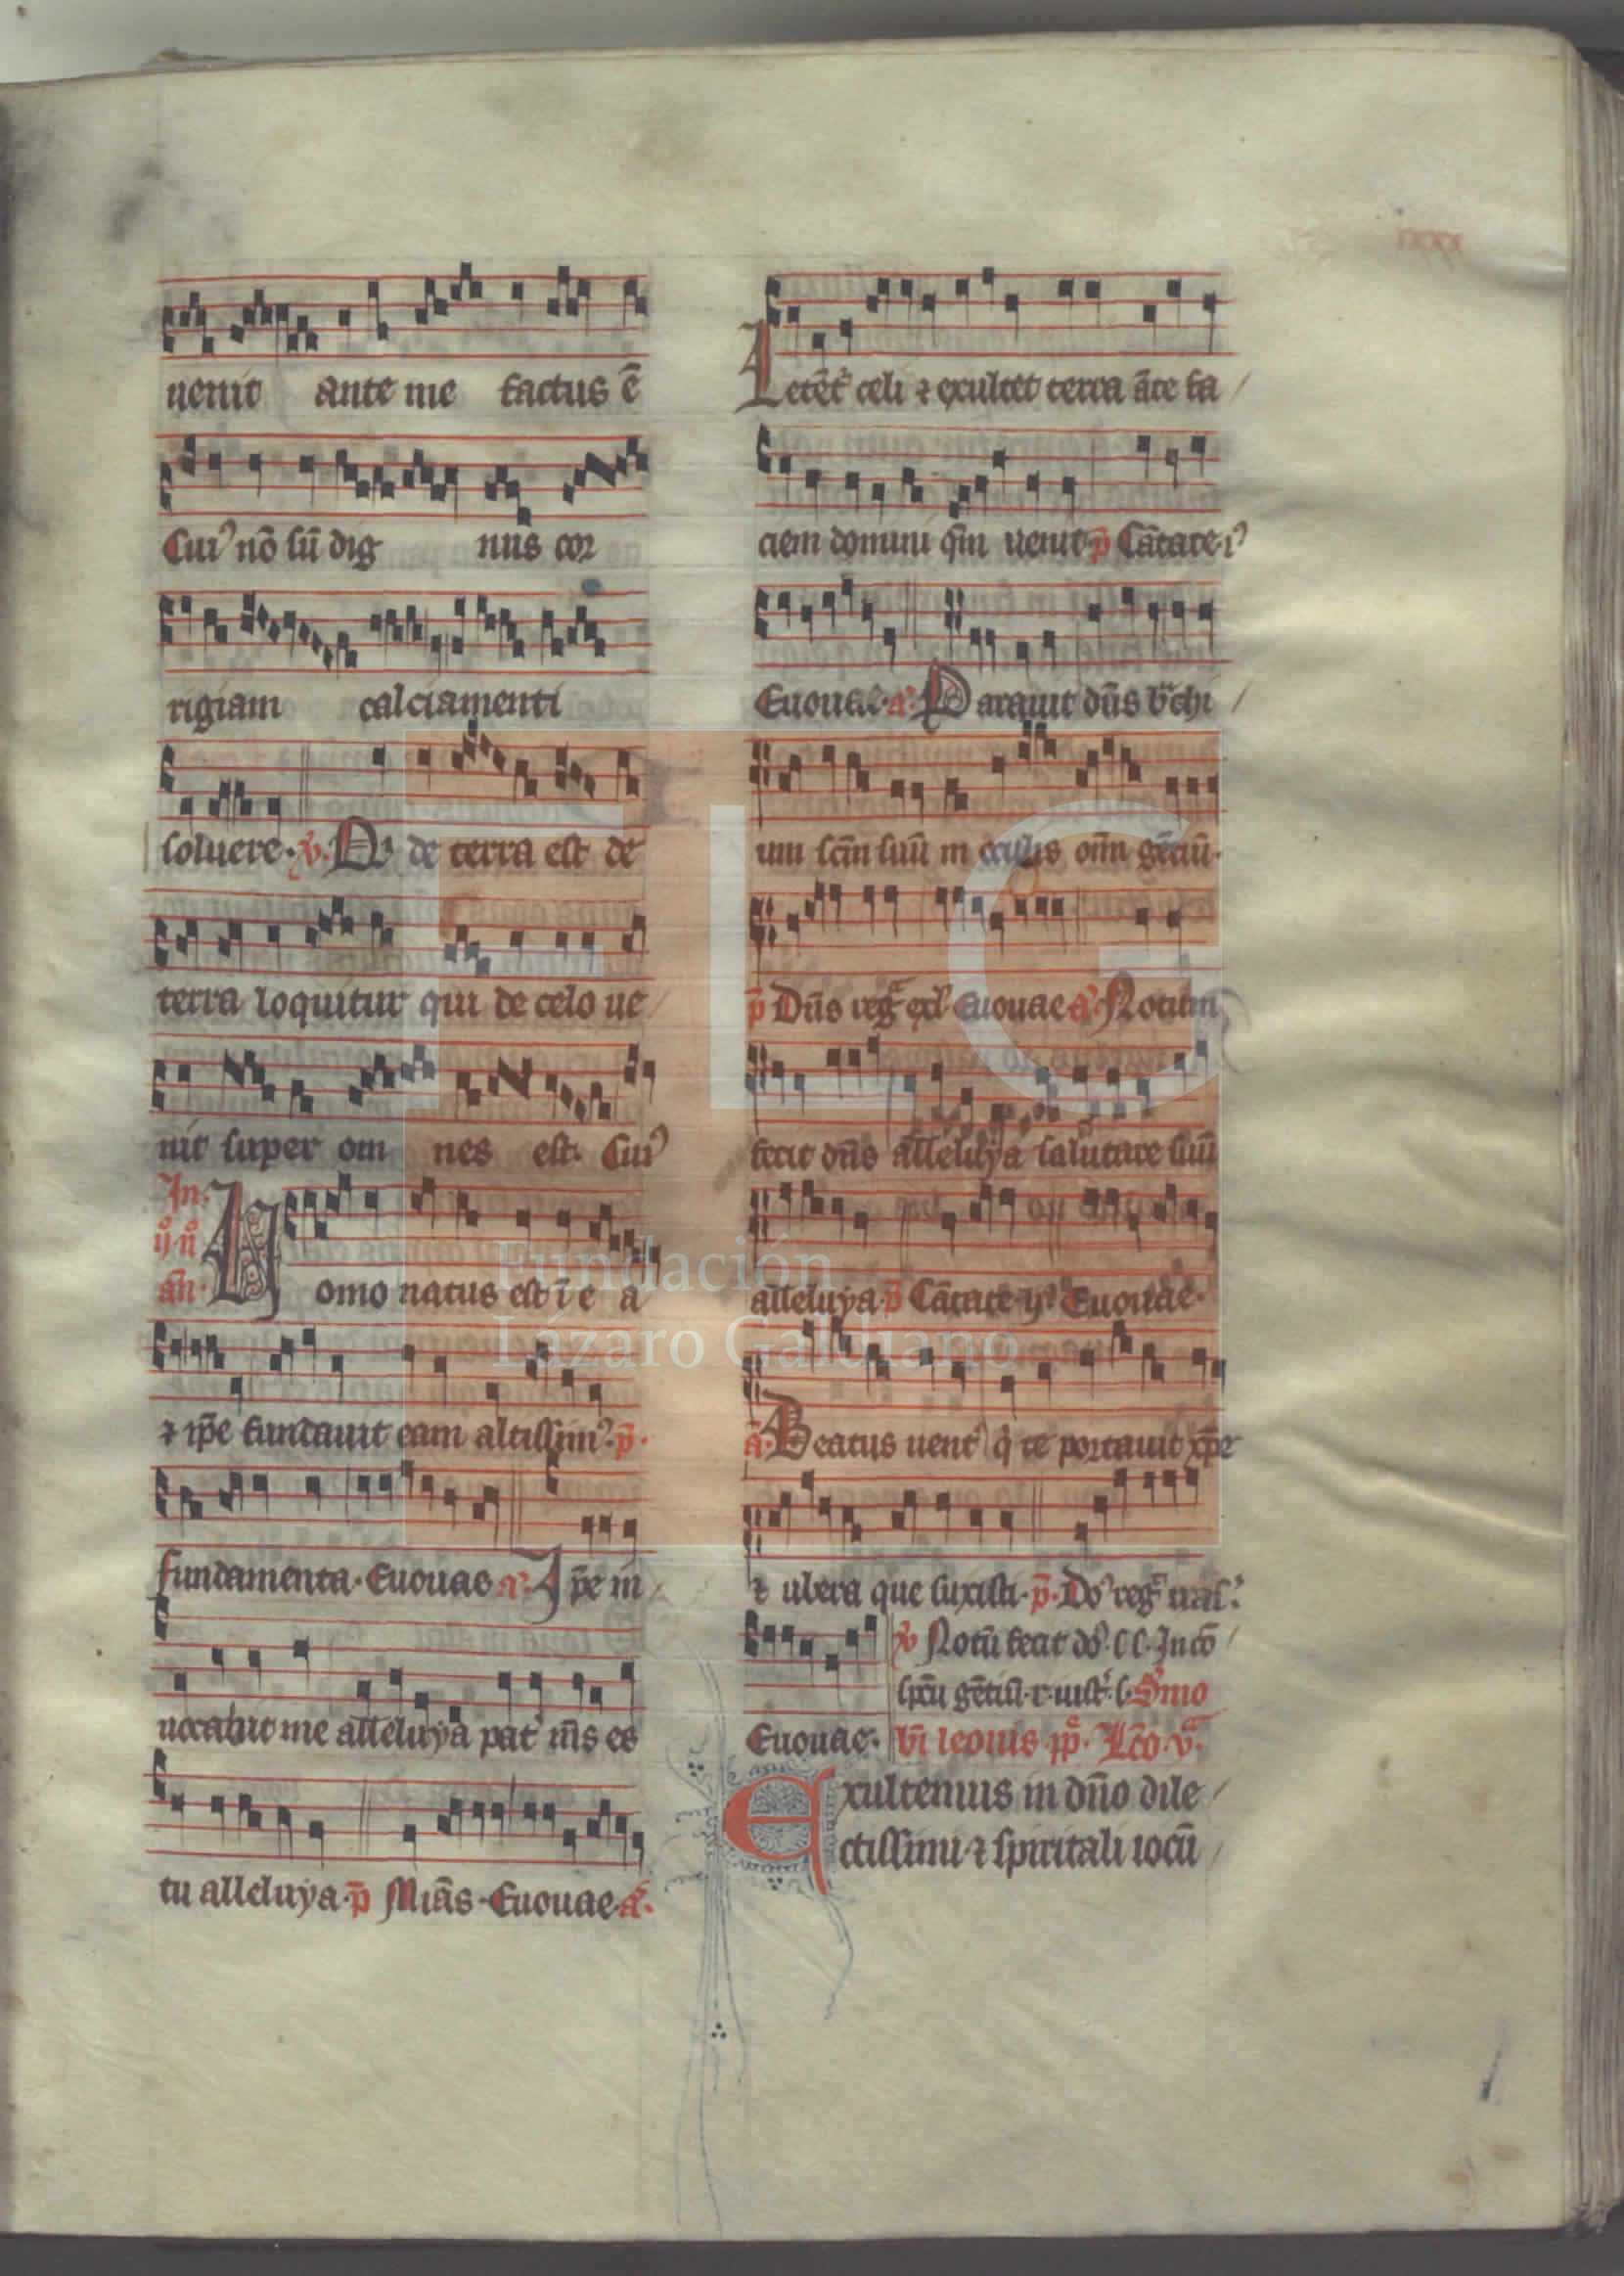 uenit ante me factus ē
Cui⁹ nō sū dig nus cor
rigiam calciamenti
soluere. v̄. Qi de terra est de
terra loquitur qui de celo ue
nit super om nes est. Cui⁹
In.
ij⁰ n⁰
an̄.
Homo natus est ī e a
⁊ ip̄e fundauit eam altissim⁹. p̄.
fundamenta. Euouae a. Ip̄e in
uocabit me all̄eluya pat̉ m̄s es
tu alleluya. p̄ Mīas. Euouae. a.
xxxi
Letēt̉ celi ⁊ exultet terra āte fa
ciem domini qm̄ uenit p̄ Cātate i⁹
Euouae. a. Parauit dn̄s b̾chi
um sc̄m suū in oculis om̄ gēciū.
p̄ Dn̄s reg̾ exl̾ Euouae a. Notum
fecit dn̄s all̄eluya salutare suū
all̄eluya. p̄ Cātate ij⁹ Euouae.
a. Beatus uent̉ q̇ te portauit xp̄e
⁊ ubera que suxisti. p̄. Do⁹ reg̾ iras̉.
v̄ Notū fecit do⁹. ll. In cō
spcū gētiū. r. iust̉. s. Smo
Euouae. bī leonis pp̄. Lc̄o. v̾.
Exultemus in dn̄o dile
ctissimi ⁊ spiritali iocū
Fundación
Lázaro Galdiano